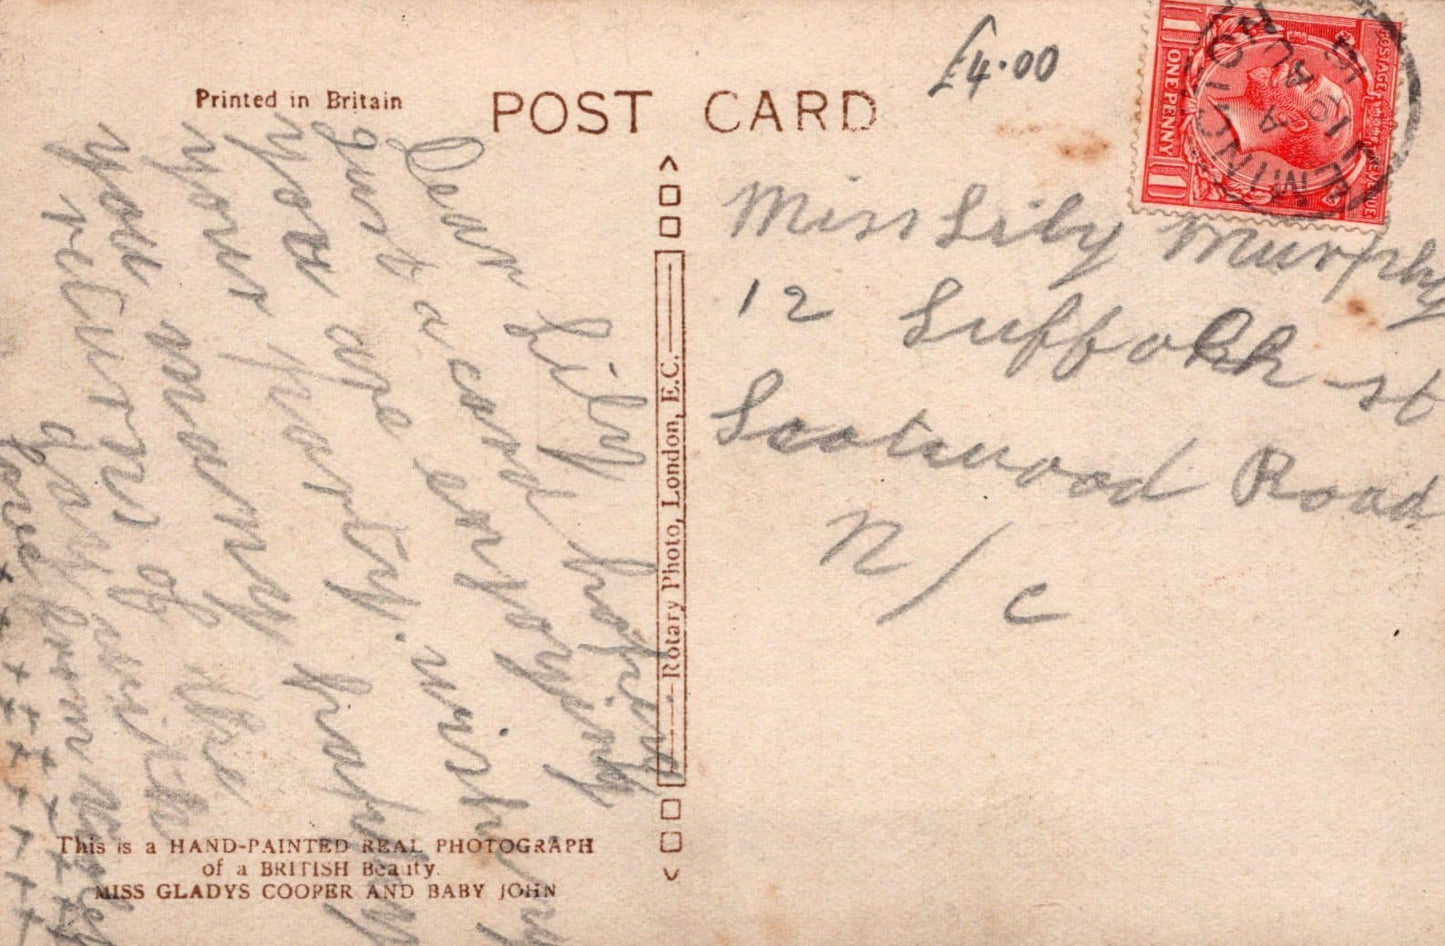 Printed in Britain
POST CARD
£4.00
POSTAGE
ONE PENNY
1 1
Miss Lily Murphy
12 Suffolk st
Scotswood Road
N/C
Dear Lily
just a card hoping
you are enjoying
your party. wishing
you many happy
returns of the
day from
love
Rotary Photo, London, E.C.
This is a HAND-PAINTED REAL PHOTOGRAPH
of a BRITISH Beauty.
MISS GLADYS COOPER AND BABY JOHN